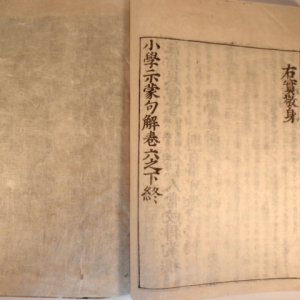 右實敬身
小學示蒙句解卷六之下終